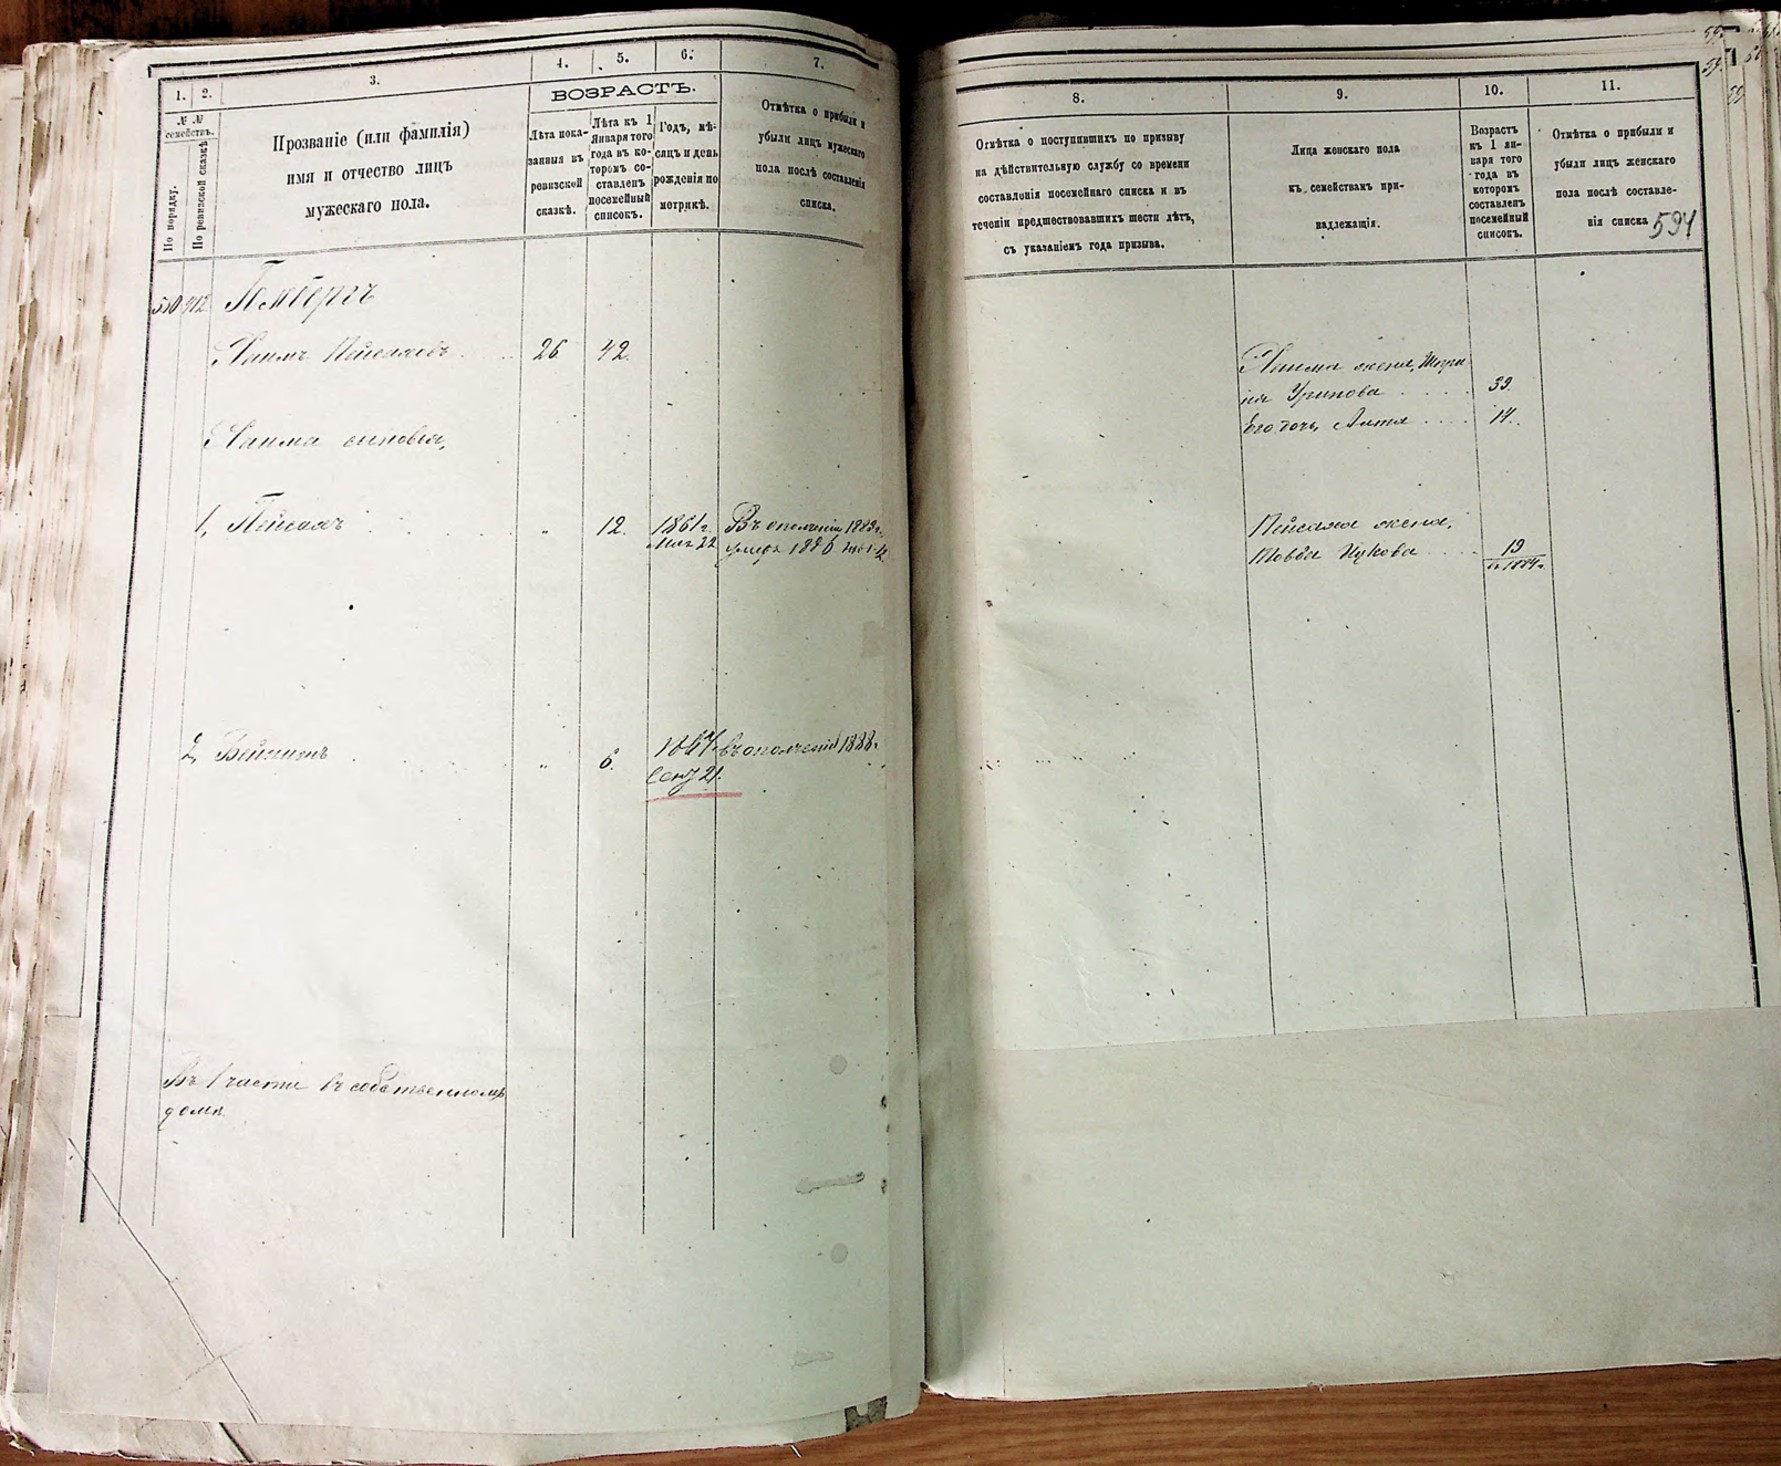 1.
2.
3.
4.
5.
6.
7.
№ №
семействъ.
По порядку.
По ревизской сказкѣ
Прозваніе (или фамилія)
имя и отчество лицъ
мужескаго пола.
ВОЗРАСТЪ.
Лѣта пока-
занныя въ
ревизской
сказкѣ.
Лѣта къ 1
Января того
года въ ко-
торомъ со-
ставленъ
посемейный
списокъ.
Годъ, мѣ-
сяцъ и день
рожденія по
метрикѣ.
Отмѣтка о прибыли и
убыли лицъ мужескаго
пола послѣ составленія
списка.
550 412
Хаимъ Пейсаховъ 26 42
Хаима сыновья,
1, Пейсахъ " 12. 1861 г. Въ ополченіи 1882 г.
22 умеръ 1886
2, Бейнишъ " 6. 1867 въ ополченіи 1888 г.
Сент 21.
Въ 1 части въ собственномъ
домѣ
8.
9.
10.
11.
Отмѣтка о поступившихъ по призыву
на дѣйствительную службу со времени
составленія посемейнаго списка и въ
теченіи предшествовавшихъ шести лѣтъ,
съ указаніемъ года призыва.
Лица женскаго пола
къ семействамъ при-
надлежащія.
Возрастъ
къ 1 ян-
варя того
года въ
которомъ
составленъ
посемейный
списокъ.
Отмѣтка о прибыли и
убыли лицъ женскаго
пола послѣ составле-
нія списка
594
Хаима жена,
39.
Его дочь 14.
Пейсаха жена,
Ицкова 19
1884 г.